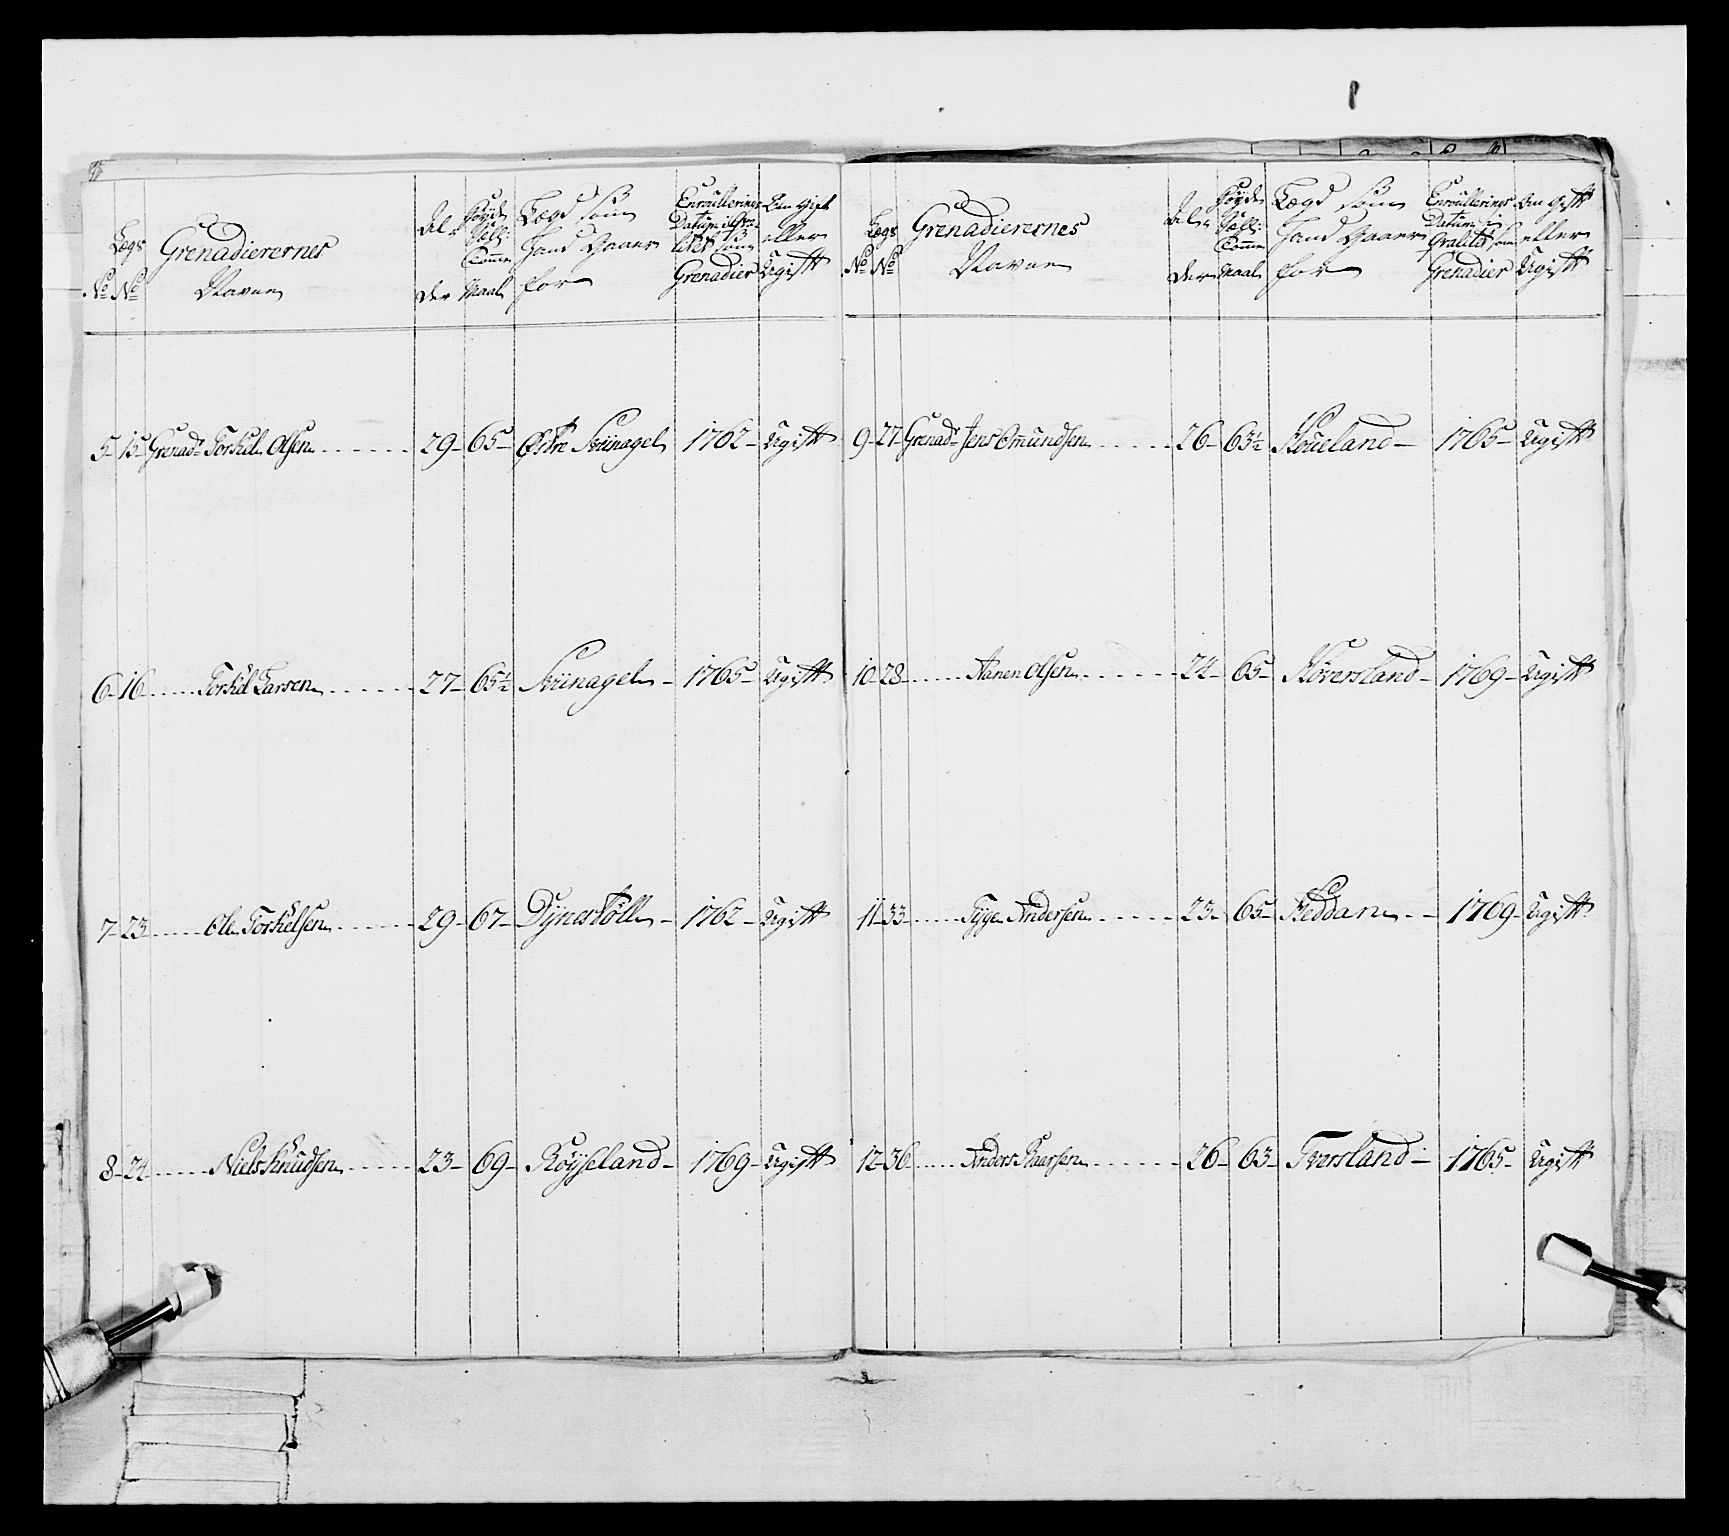 Lægs
No No
Grenadierernes
Navne
Al-
der
Høyde
Comme
Maal
Lægd som
hand staaer
for
Enroullerings
Datum
som
Grenadier
Om Gift
eller
Ugift
5 - 15 - Grenadr Torkel Olsen ...... 29 - 65 - Østre Svinagel 1762 - Ugift
6 - 16 ...... Torkel Larsen ...... 27 - 65½ Svinagel - 1765 - Ugift
7 - 23 ...... Ole Torkelsen ...... 29 - 67 - Dynestöll - 1762 - Ugift
8 - 24 ...... Niels Knudsen ...... 23 - 69 - Röyseland - 1769 - Ugift
Lægs
No No
Grenadierernes
Navne
Al-
der
Høyde
Comme
Maal
Lægd som
hand staaer
for
Enroullerings
Datum i
Qvalitet som
Grenadier
Om Gift
eller
Ugift
9 - 27 - Grenadr Jens Omundsen ...... 26 - 63½ Houeland - 1765 - Ugift
10 - 28 ...... Aanen Olsen ...... 24 - 65 - Höversland - 1769 - Ugift
11 - 33 ...... Tyge Andersen ...... 23 - 65 - Heddan - 1769 - Ugift
12 - 36 ...... Anders Roarsen ...... 26 - 63 - Tversland - 1765 - Ugift